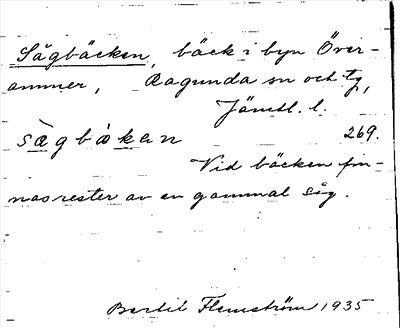 Sågbäcken, bäck i byn Över-
ammer, Ragunda sn och tg,
Jämtl. l.
sàgbàkan 269.
Vid bäcken fin-
nas rester av en gammal såg.
Bertil Flemström 1935